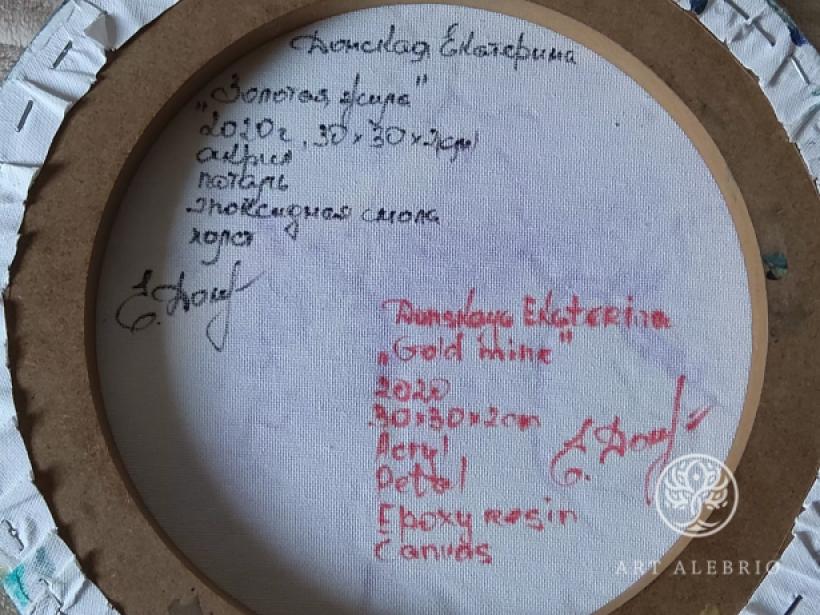 Донская Екатерина
„Золотая жила"
2020г, 30×30×2см
акрил
поталь
эпоксидная смола
холст
Е. Дон
Donskaya Ekaterina
„Gold mine"
2020
30×30×2cm
Acryl
Petal
Epoxy resin
Canvas
Е. Дон
ART ALEBRIO